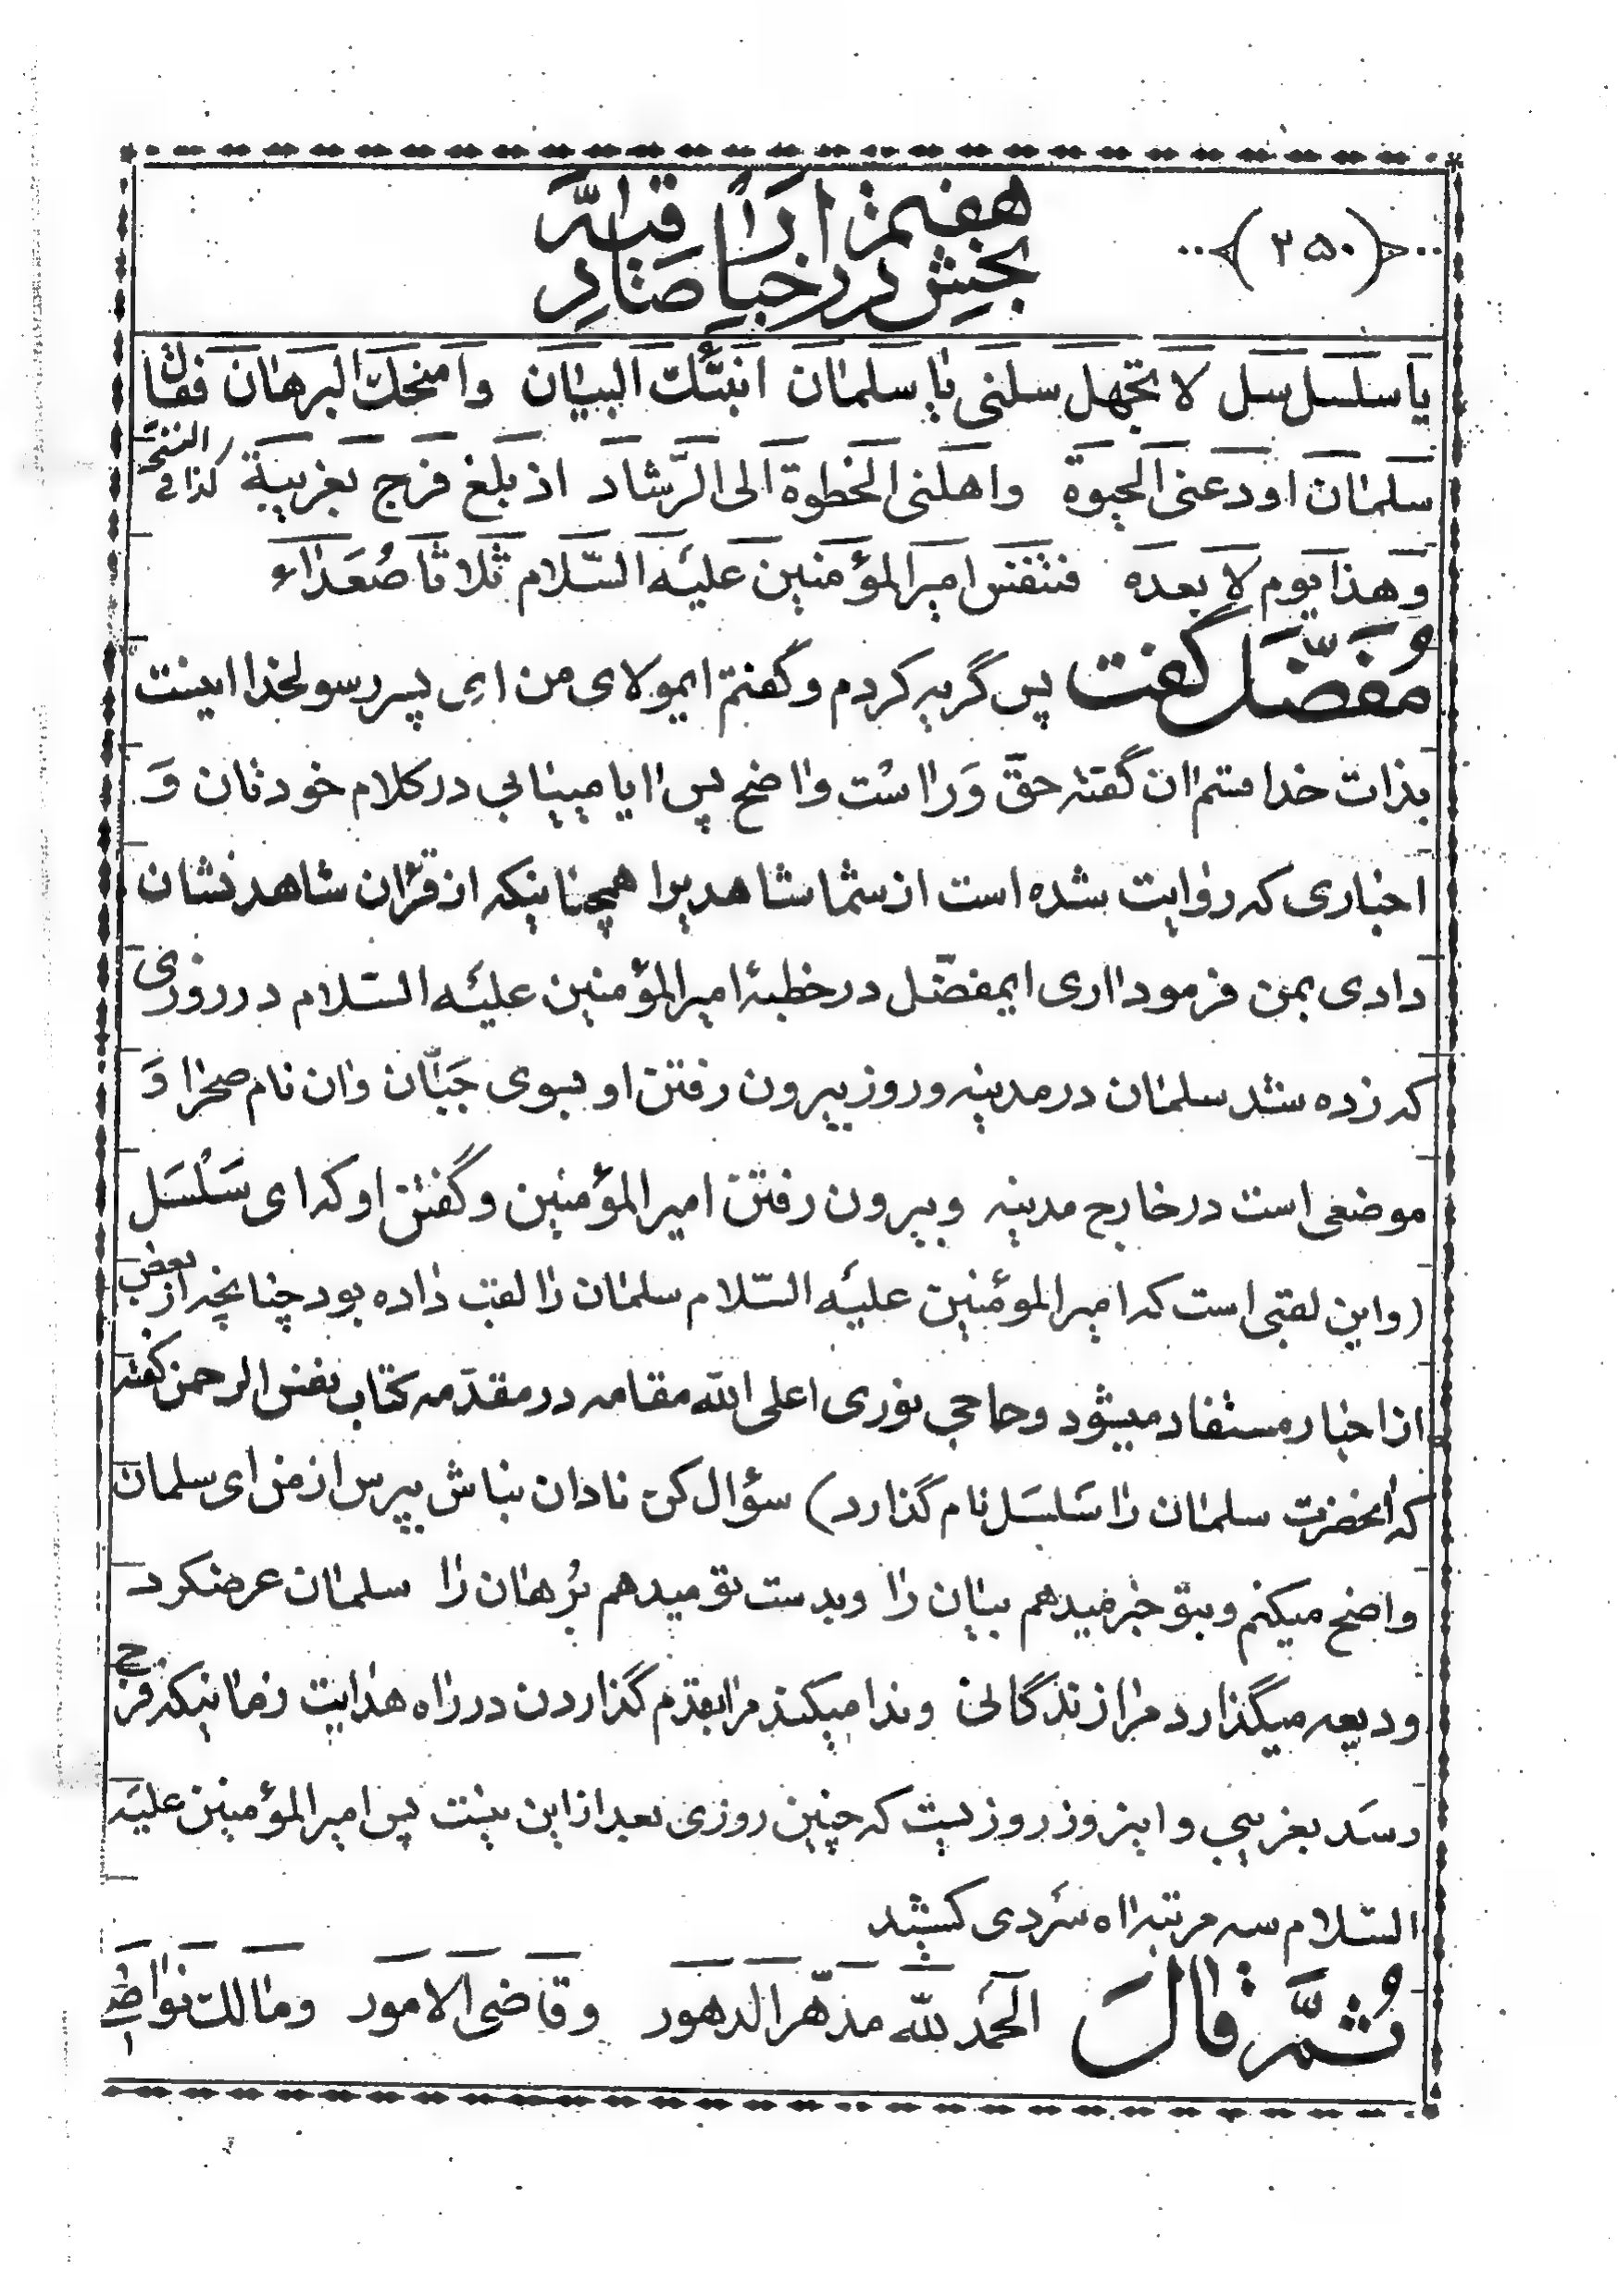 (۲۵۰)
بخش هفتم در اخبار صادقیّه
یا سلسل سل لا تجهل سلنی یا سلمان انبئک البیان وامنحک البرهان فقال
سلمان اودعنی الحیوة واهلنی الخطوة الی الرّشاد اذ بلغ فرج بغریبة کذا فی النسخة
وهذا یوم لا بعده فتنفس امیر المؤمنین علیه السّلام ثلاثا صُعَداء
مُفَضَّل گفت پس گریه کردم و گفتم ایمولای من ای پسر رسولخدا اینست
بذات خدا قسم ان گفته حقّ وَ راسْت واضح پس ایا مییابی در کلام خودتان وَ
اخباری که روایت شده است از شما شاهدیرا همچنانیکه از قرآن شاهد نشان
دادی بمن فرمود اری ایمفضّل در خطبهٔ امیر المؤمنین علیه السّلام در روزی
که زده شد سلمان در مدینه و روز بیرون رفتن او بسوی جَبّان وان نام صحرا وَ
موضعی است در خارج مدینه و بیرون رفتن امیر المؤمنین و گفتن او که ای سَلْسَل
(واین لقبی است که امیر المؤمنین علیه السّلام سلمان را لقب داده بود چنانچه از بعض
از اخبار مستفاد میشود و حاجی نوری اعلی الله مقامه در مقدّمه کتاب نفس الرحمن گفته
که انحضرت سلمان را سَلسَل نام گذارد) سؤال کن نادان نباش بپرس از من ای سلمان
واضح میکنم و بتو خبر میدهم بیان را و بدست تو میدهم بُرهان را سلمان عرضکرد
ودیعه میگذارد مرا زندگانی و ندا میکند مرا بقدم گذاردن در راه هدایت زمانیکه فرج
رسَد بغریبی و اینروز روزیست که چنین روزی بعد از این نیست پس امیر المؤمنین علیه
السّلام سه مرتبه اه سَردی کشید
ثُمَّ قالَ الحمد لله مدّهر الدهور وقاضی الامور ومالک نواصی